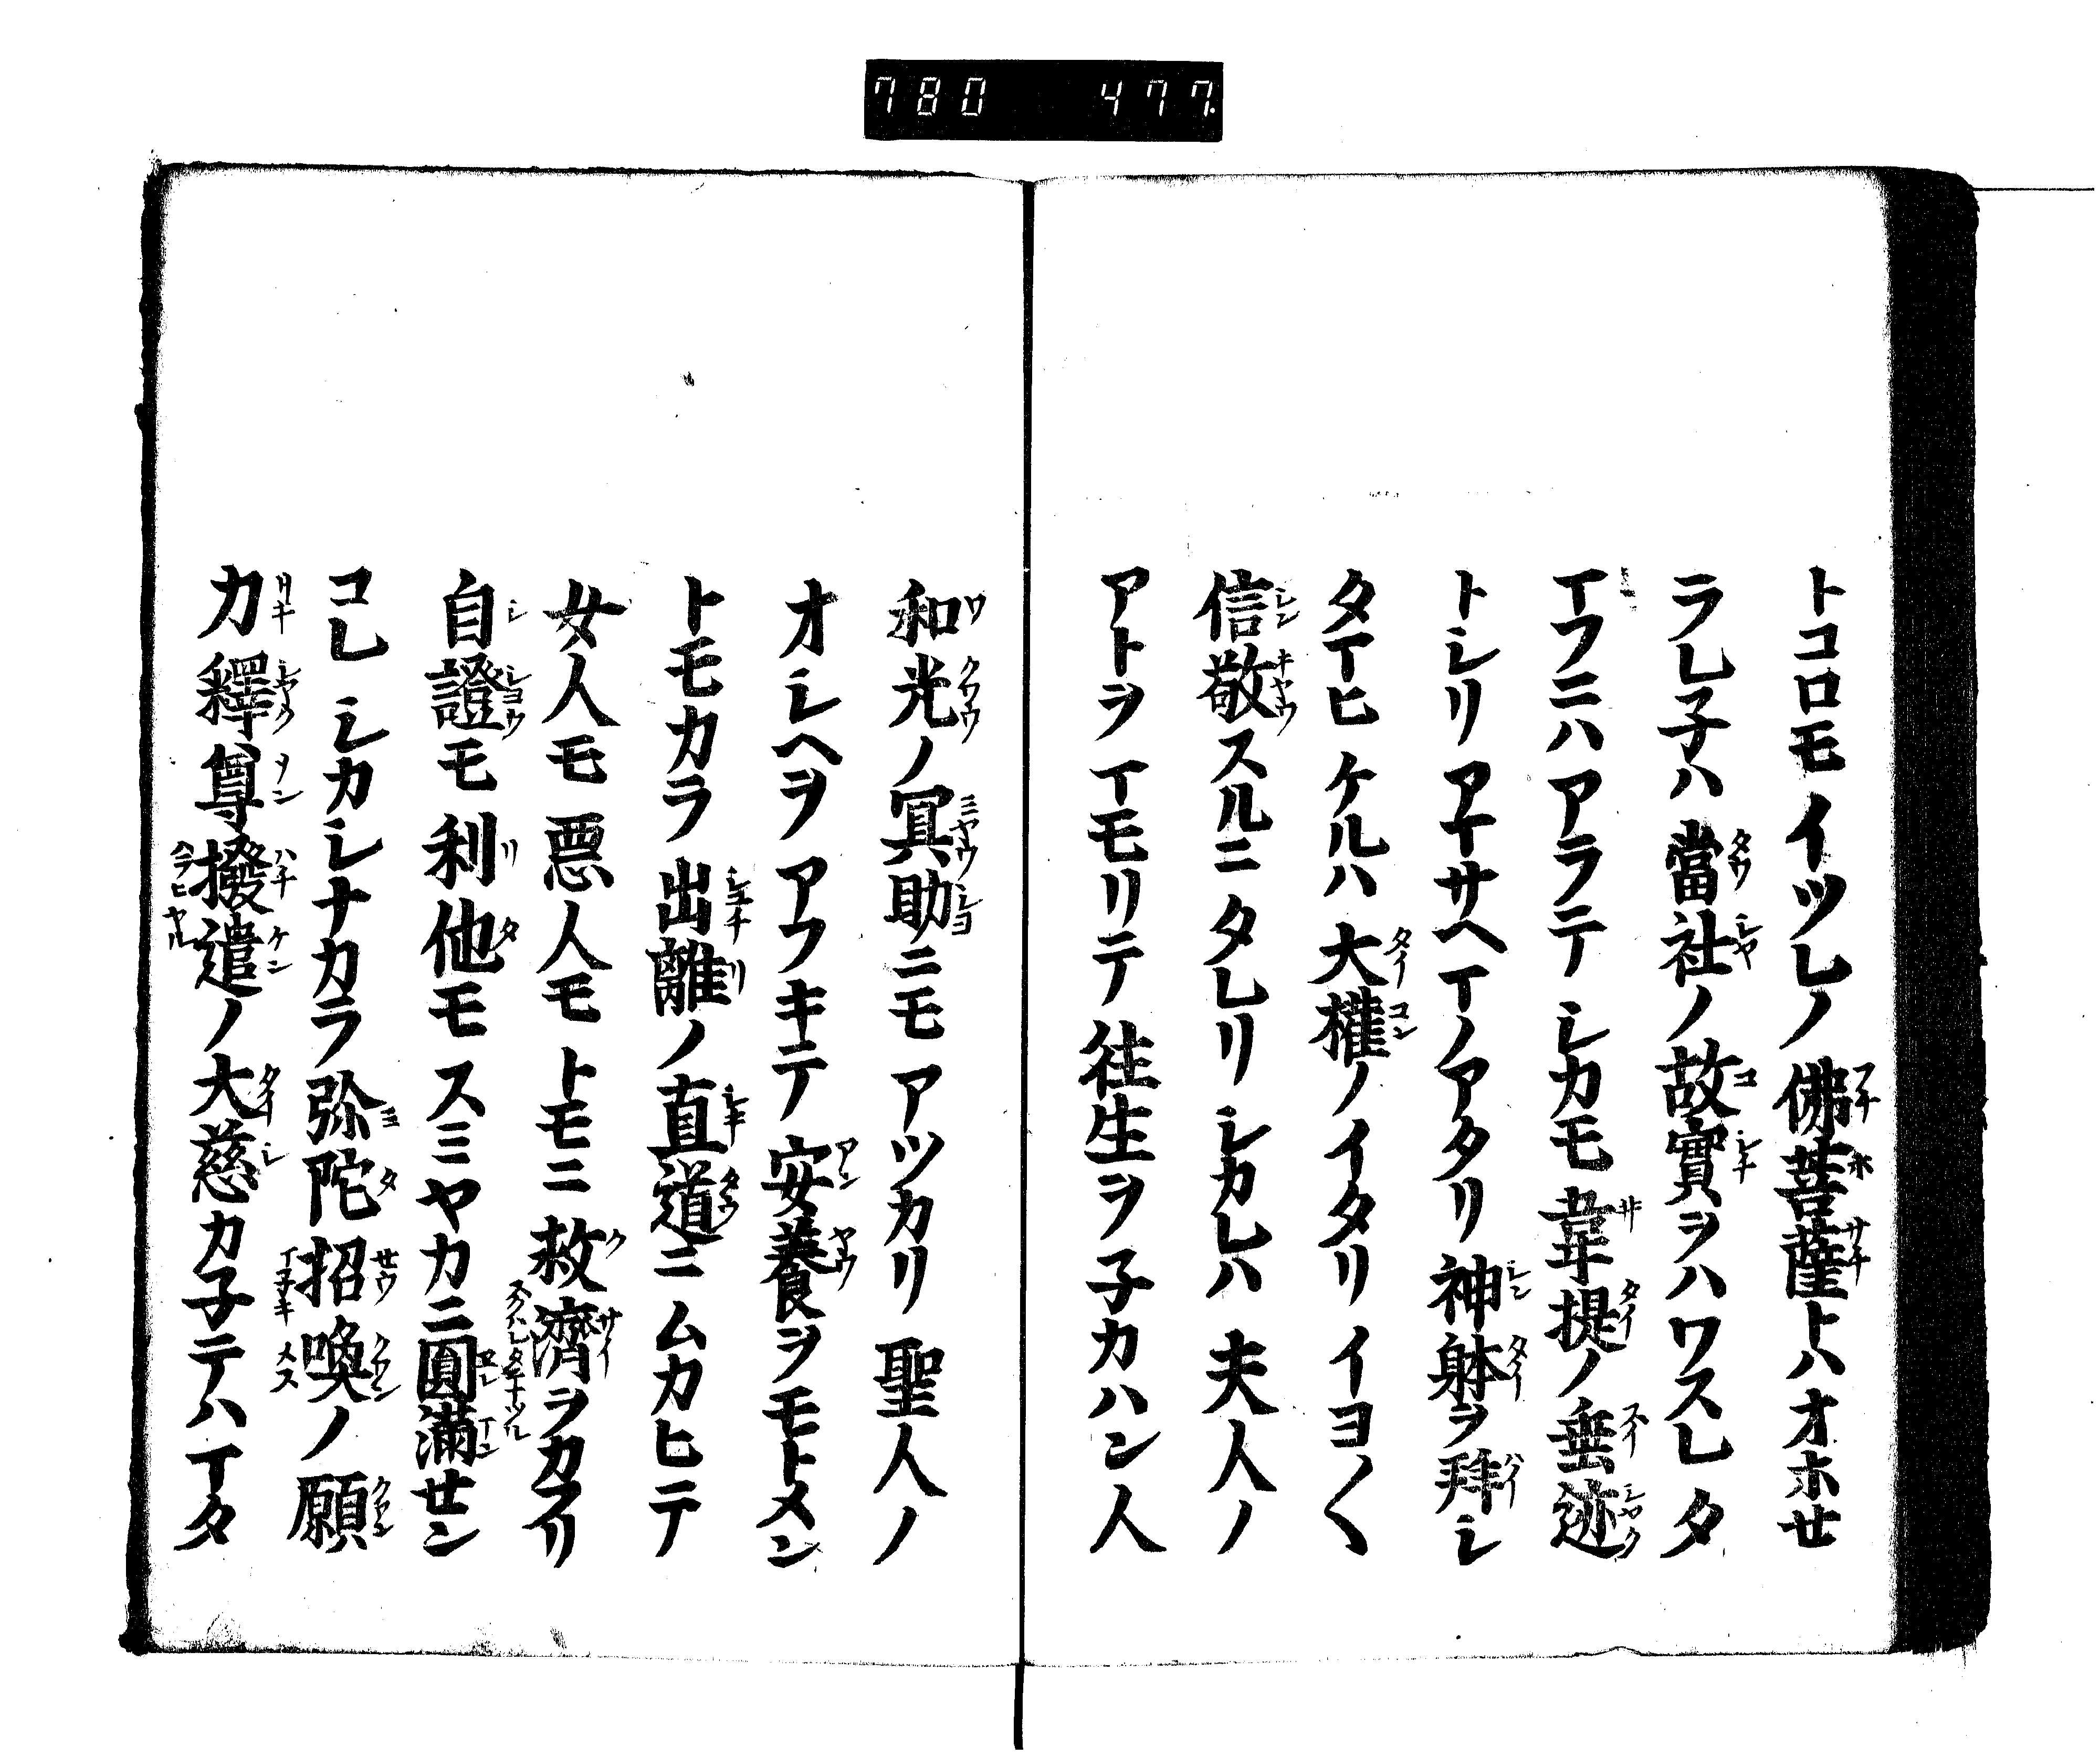 780 477
トコロモイツレノ佛菩薩トハオホセ
ラレ子ハ當社ノ故實ヲハワスレタ
マフニハアラテシカモ韋提ノ垂迹
トシリアマサヘマノアタリ神躰ヲ拜シ
タマヒケルハ大權ノイタリイヨ〱
信敬スルニタレリシカレハ夫人ノ
アトヲマモリテ往生ヲ子カハン人
和光ノ冥助ニモアツカリ聖人ノ
オシヘヲアフキテ安養ヲモトメン
トモカラ出離ノ直道ニムカヒテ
女人モ惡人モトモニ救濟ヲカフリ
自證モ利他モスミヤカニ圓滿セン
コレシカシナカラ弥陀招喚ノ願
力釋尊撥遣ノ大慈カ子テハマタ